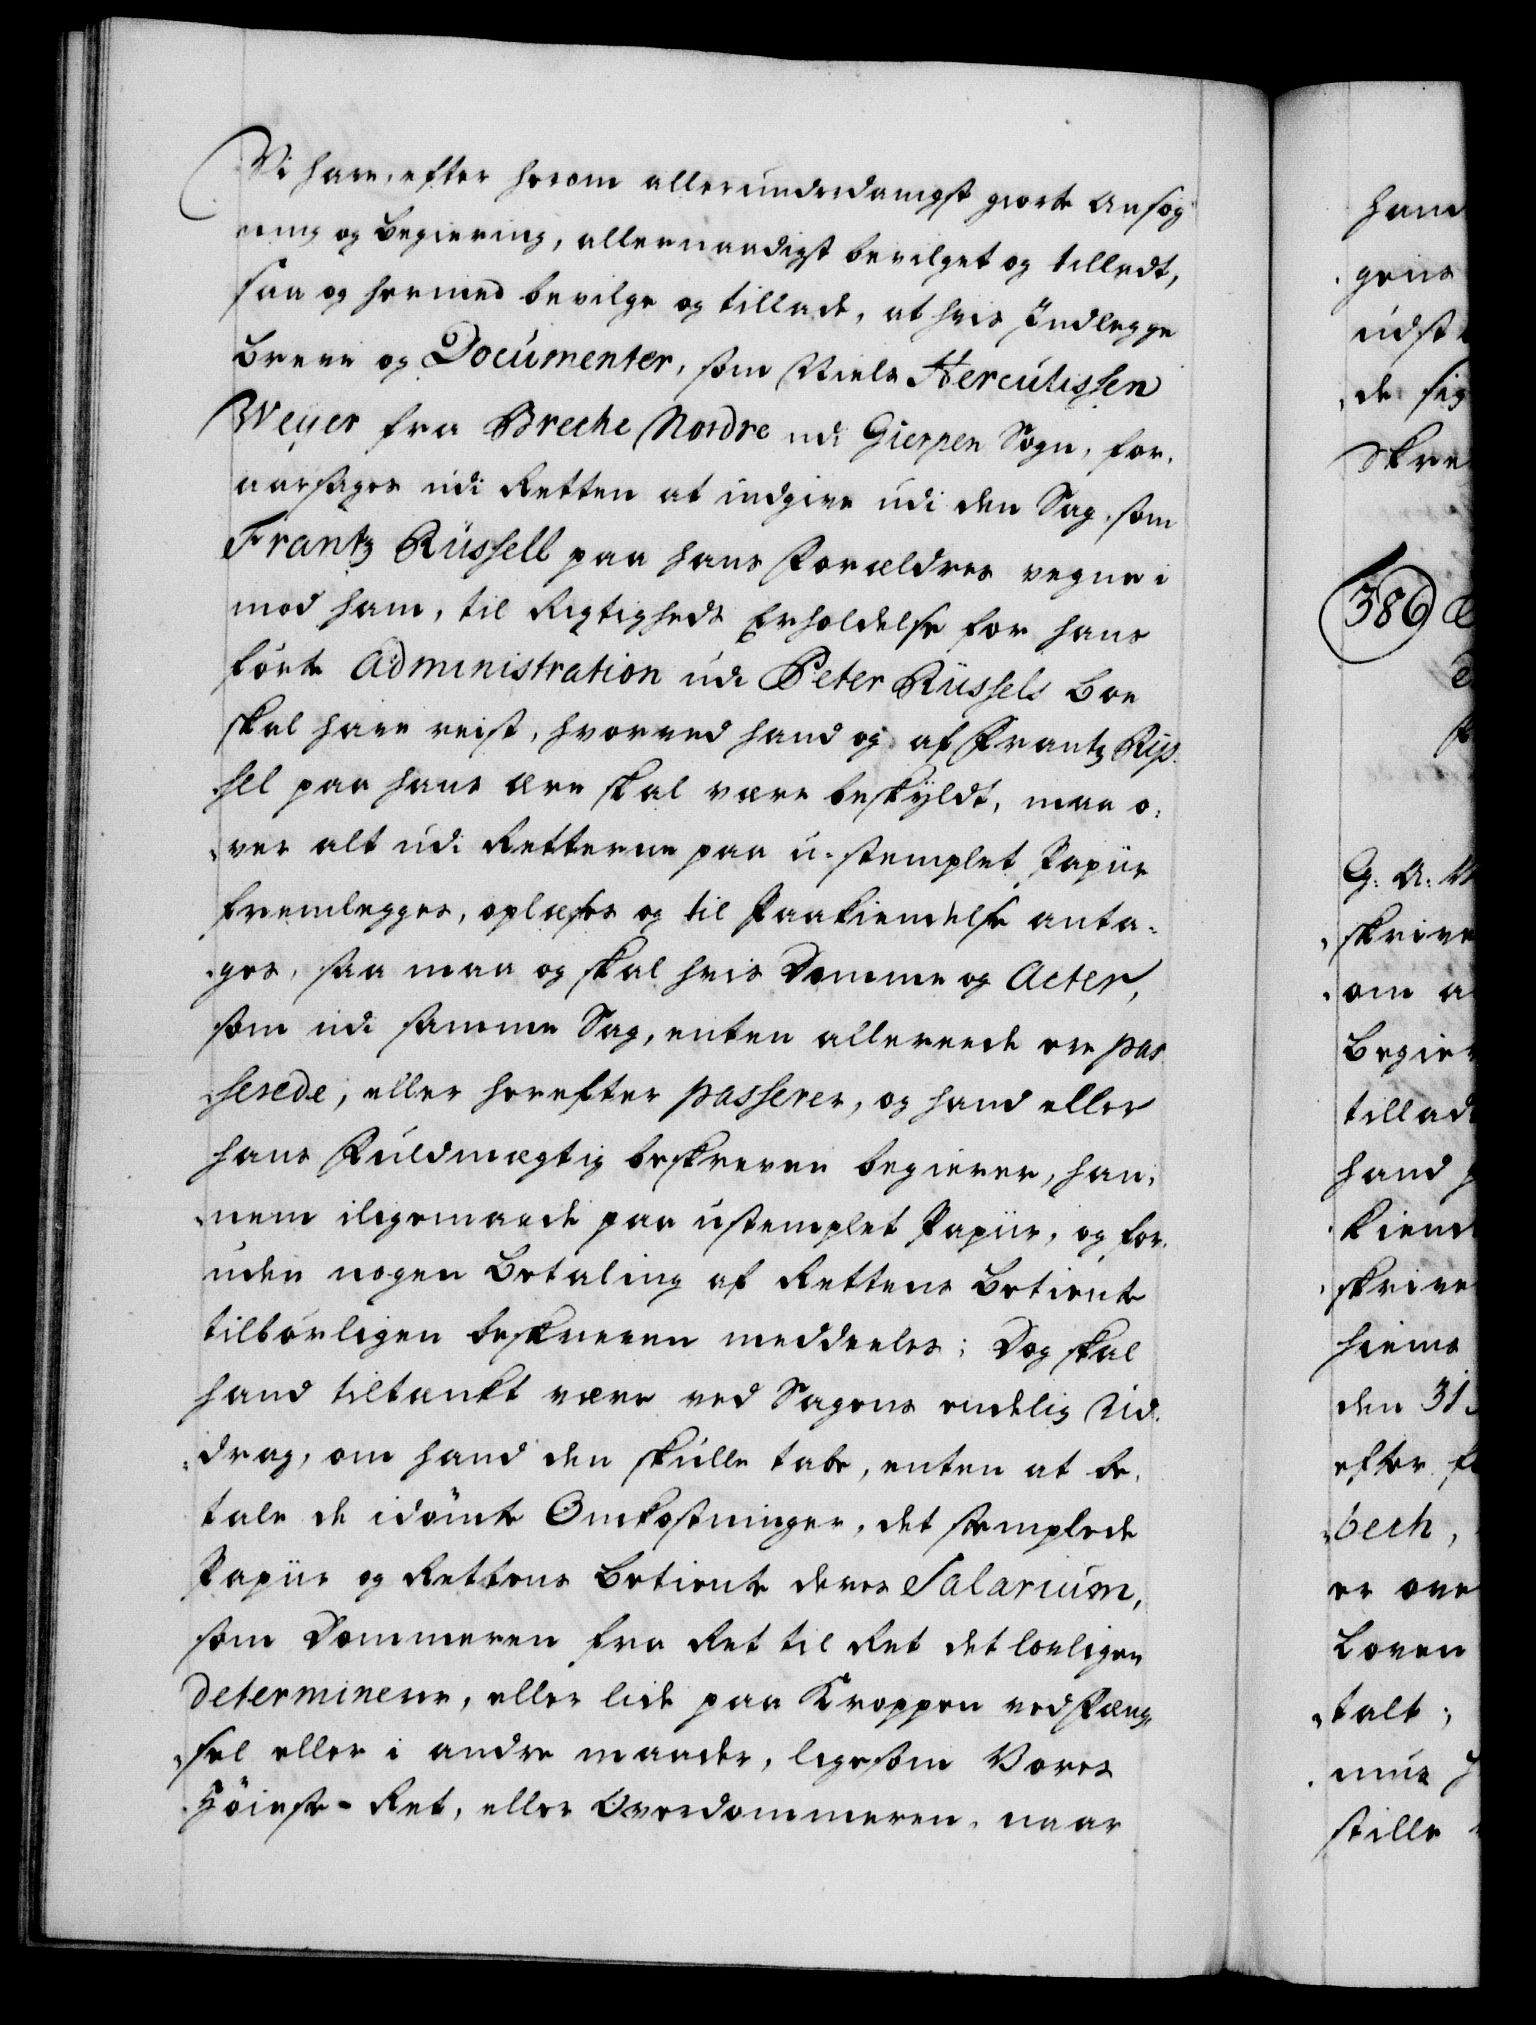 Vi have, efter herom allerunderdanigst giorte Ansøg
ning og Begiering, allernaadigst bevilget og tilladt,
saa og hermed bevilge og tillade, at hvis Indlegge
Breve og Documenter, som Niels Herculissen
Weyer fra Breche Nordre udi Gierpen Sogn, for,
aarsages udi Retten at indgive udi den Sag, som
Frantz Rüssell paa hans Forældres vegne i
mod ham, til Rigtigheds Erholdelse for hans
førte Administration udi Peter Rüssels Boe
skal have reist, hvorved hand og af Frantz Rüs,
sel paa hans Ære skal være beskyldt, maa o,
ver alt udi Retterne paa u-stemplet Papiir
fremlegges, oplæses og til Paakiendelse anta,
ges, saa maa og skal hvis Domme og Acter,
som udi samme Sag, enten allereede ere pas
serede, eller herefter passerer, og hand eller
hans Fuldmægtig beskreven begierer, han,
nem iligemaade paa ustemplet Papiir, og for,
uden nogen Betaling af Rettens Betiente
tilbørligen beskreven meddeeles; Dog skal
hand tiltænkt være ved Sagens endelig Ud,
drag, om hand den skulle tabe, enten at be,
tale de idømte Omkostninger, det stemplede
Papiir og Rettens Betiente deres Salarium,
som Dommeren fra Ret til Ret det lovligen
determinerer, eller lide paa Kroppen ved Fæng,
sel eller i andre maader, ligesom Vores
Høieste-Ret, eller Overdommeren, naar
hand
gens
udst
de sig
Skre
386
G: A: V
skrive
om a
Begier
tillad
hand
kiend
skrive
hiems
den 31
efter
bech,
er ove
Loven
talt;
mue
stille